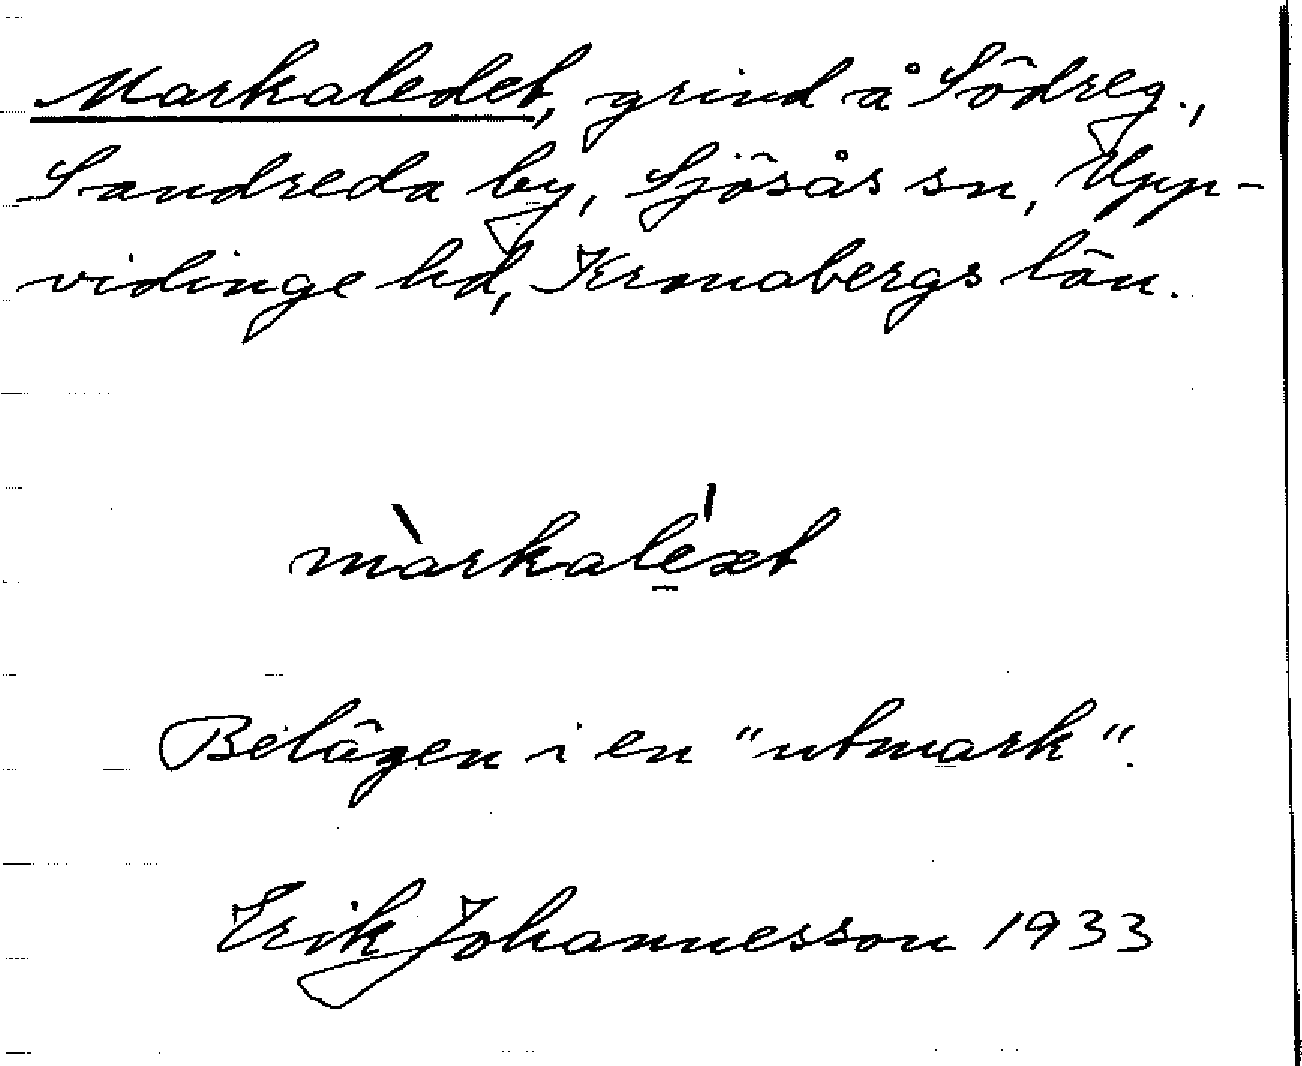 Markaledet, grind å Södreg.,
Sandreda by, Sjösås sn, Upp-
vidinge hd, Kronobergs län.
màrkaléxt
Belägen i en "utmark".
Erik Johannesson 1933